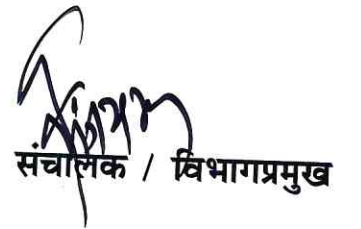 संचालक / विभागप्रमुख